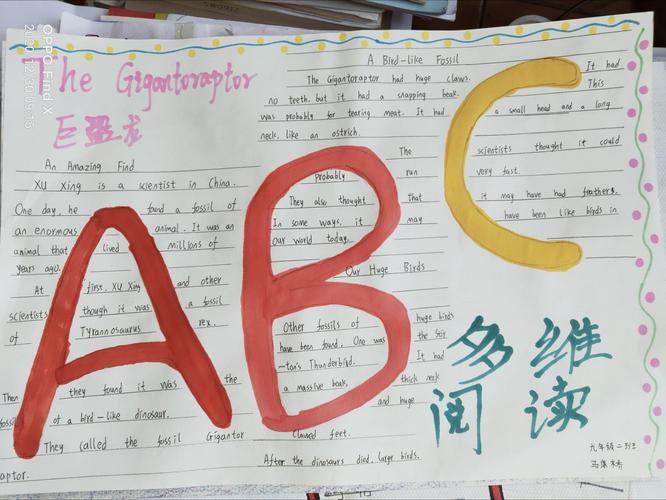 OPPO Find X
The Gigantoraptor
巨盗龙
An Amazing Find
XU Xing is a scientist in China.
One day, he found a fossil of
an enormous animal. It was an
animal that lived millions of
years ago.
At first, XU Xing and other
scientists though it was a fossil
of Tyrannosaurus rex.
Then they found it was the
fossil of a bird-like dinosaur.
They called the fossil Gigantor
aptor.
A Bird-like Fossil
The Gigantoraptor had huge claws. It had
no teeth, but it had a snapping beak. This
was probably for tearing meat. It had a small head and a long
neck, like an ostrich.
The scientists thought it could
probably run very fast.
They also thought that it may have had feathers.
In some ways, it may have been like birds in
our world today.
Our Huge Birds
Other fossils of huge birds
have been found. One was the Stir
-ton's Thunderbird. It had
a massive beak, thick neck
and huge
clawed feet.
After the dinosaurs died, large birds.
ABC
多维
阅读
九年级二班